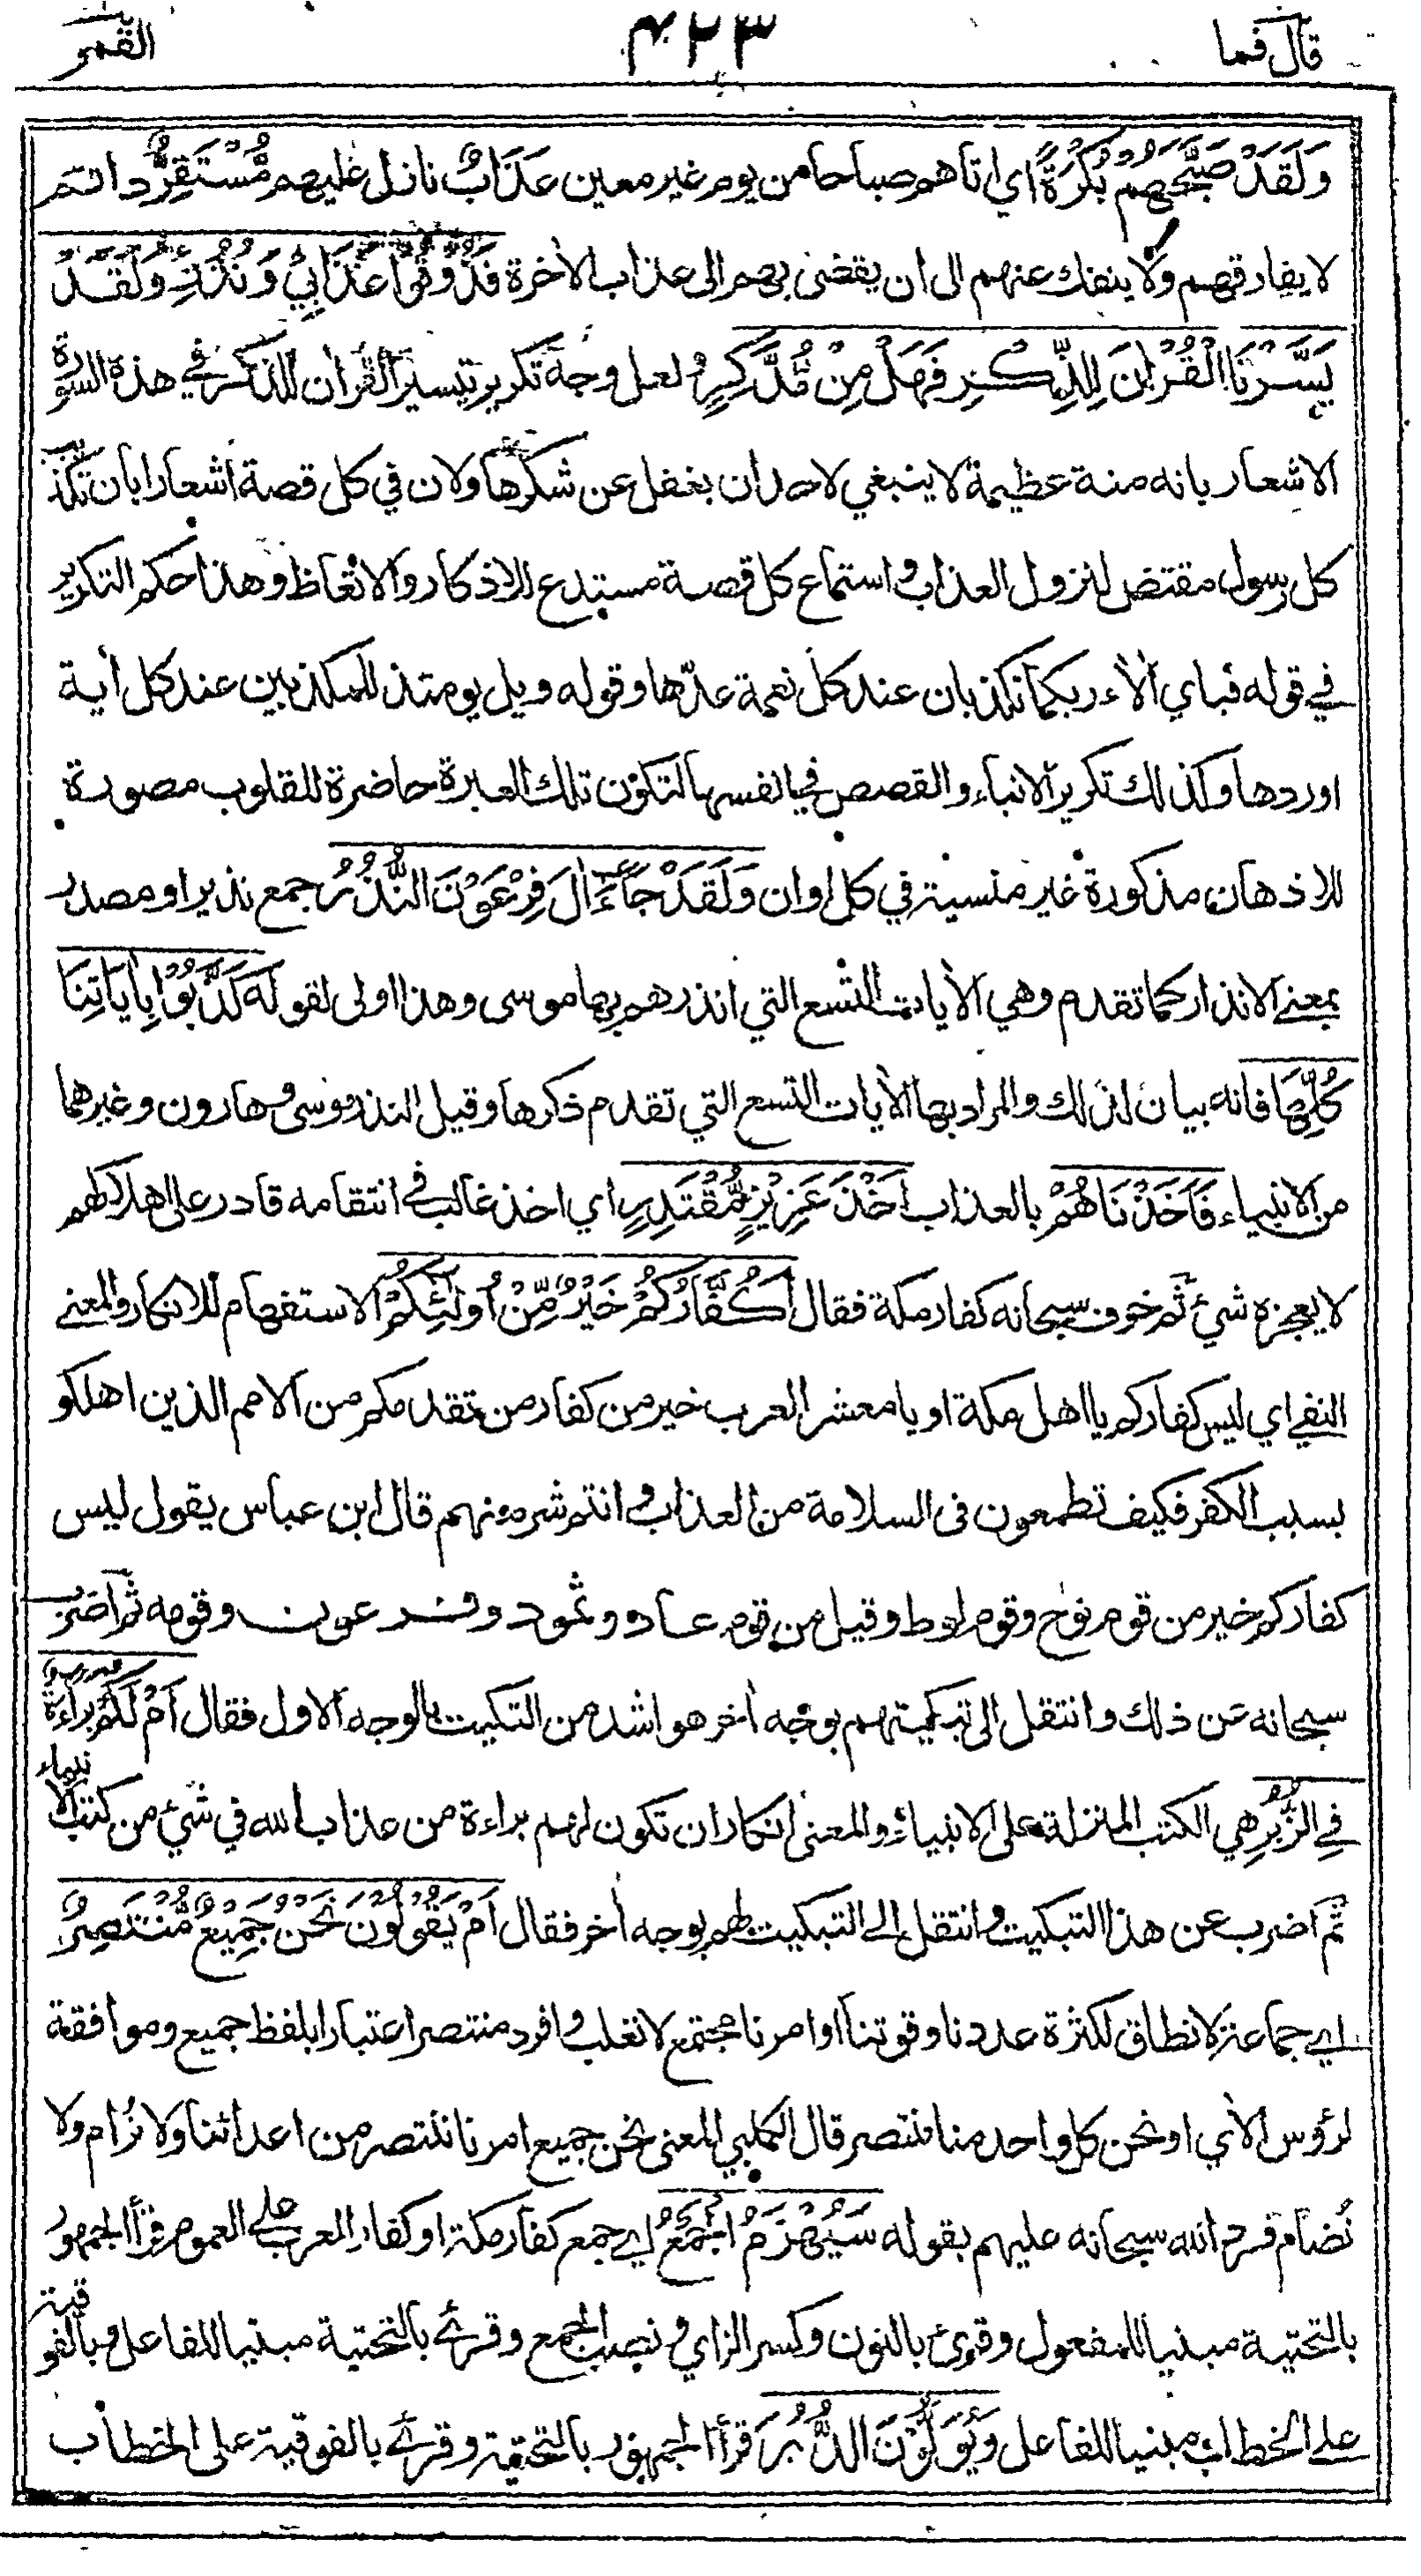 قال فما ٤٢٣ القمر
وَلَقَدْ صَبَّحَهُمْ بُكْرَةً اي اتاهم صباحا من يوم غير معين عَذَابٌ نازل عليهم مُّسْتَقِرٌّ دائم
لا يفارقهم ولا ينفك عنهم الى ان يقضى بهم الى عذاب الاخرة فَذُوْقُوْا عَذَابِيْ وَنُذُرِ وَلَقَدْ
يَسَّرْنَا الْقُرْاٰنَ لِلذِّكْرِ فَهَلْ مِنْ مُّدَّكِرٍ ولعل وجه تكرير تيسير القرأن للذكر في هذه السورة
الاشعار بانه منة عظيمة لا ينبغي لاحد ان يغفل عن شكرها ولان في كل قصة اشعارا بان تكذيب
كل رسول مقتض لنزول العذاب واستماع كل قصة مستدع للاذكار والاتعاظ وهذا حكم التكرير
في قوله فباي ألاء ربكما تكذبان عند كل نعمة عدّها وقوله ويل يومئذ للمكذبين عند كل أية
اوردها وكذلك تكرير الانباء والقصص في انفسها لتكون تلك العبرة حاضرة للقلوب مصورة
للاذهان مذكورة غير منسية في كل اوان وَلَقَدْ جَآءَ اٰلَ فِرْعَوْنَ النُّذُرُ جمع نذير او مصدر
بمعنى الانذار كما تقدم وهي الأيات التسع التي انذرهم بها موسى وهذا اولى لقوله كَذَّبُوْا بِأيَاتِنَا
كُلِّهَا فانه بيان لذلك والمراد بها الأيات التسع التي تقدم ذكرها وقيل النذر موسى وهارون وغيرهما
من الانبياء فَاَخَذْنَاهُمْ بالعذاب اَخْذَ عَزِيْزٍ مُّقْتَدِرٍ اي اخذ غالب في انتقامه قادر على اهلاكهم
لا يعجزه شئ ثم خوف سبحانه كفار مكة فقال اَكُفَّارُكُمْ خَيْرٌ مِّنْ اُولٰئِكُمْ الاستفهام للانكار والمعنى
النفي اي ليس كفاركم يا اهل مكة او يا معشر العرب خير من كفار من تقدمكم من الامم الذين اهلكو
بسبب الكفر فكيف تطمعون فى السلامة من العذاب وانتم شر منهم قال ابن عباس يقول ليس
كفاركم خير من قوم نوح وقوم لوط وقيل من قوم عاد وثمود وفرعون وقومه ثم اضرب
سبحانه عن ذلك وانتقل الى تبكيتهم بوجه أخر هو اشد من التكيت بالوجه الاول فقال اَمْ لَكُمْ بَرَاءَةٌ
فِي الزُّبُرِ هي الكتب المنزلة على الانبياء والمعنى انكار ان تكون لهم براءة من عذاب الله في شئ من كتب الانبياء
ثم اضرب عن هذا التبكيت وانتقل الى التبكيت لهم بوجه أخر فقال اَمْ يَقُوْلُوْنَ نَحْنُ جَمِيْعٌ مُّنْتَصِرٌ
اي جماعة لا نطاق لكثرة عددنا وقوتنا او امرنا مجتمع لا نغلب وافرد منتصر اعتبارا بلفظ جميع وموافقة
لرؤس الأي او نحن كل واحد منا منتصر قال الكلبي المعنى نحن جميع امرنا ننتصر من اعدائنا ولا نُرام ولا
نُضام فرد الله سبحانه عليهم بقوله سَيُهْزَمُ الْجَمْعُ اي جمع كفار مكة او كفار العرب على العموم قرأ الجمهور
بالتحتية مبنيا للمفعول وقرئ بالنون وكسر الزاي ونصب الجمع وقرئ بالتحتية مبنيا للفاعل وبالفوقية
على الخطاب مبنيا للفاعل وَيُوَلُّوْنَ الدُّبُرَ قرأ الجمهور بالتحتية وقرئ بالفوقية على الخطاب